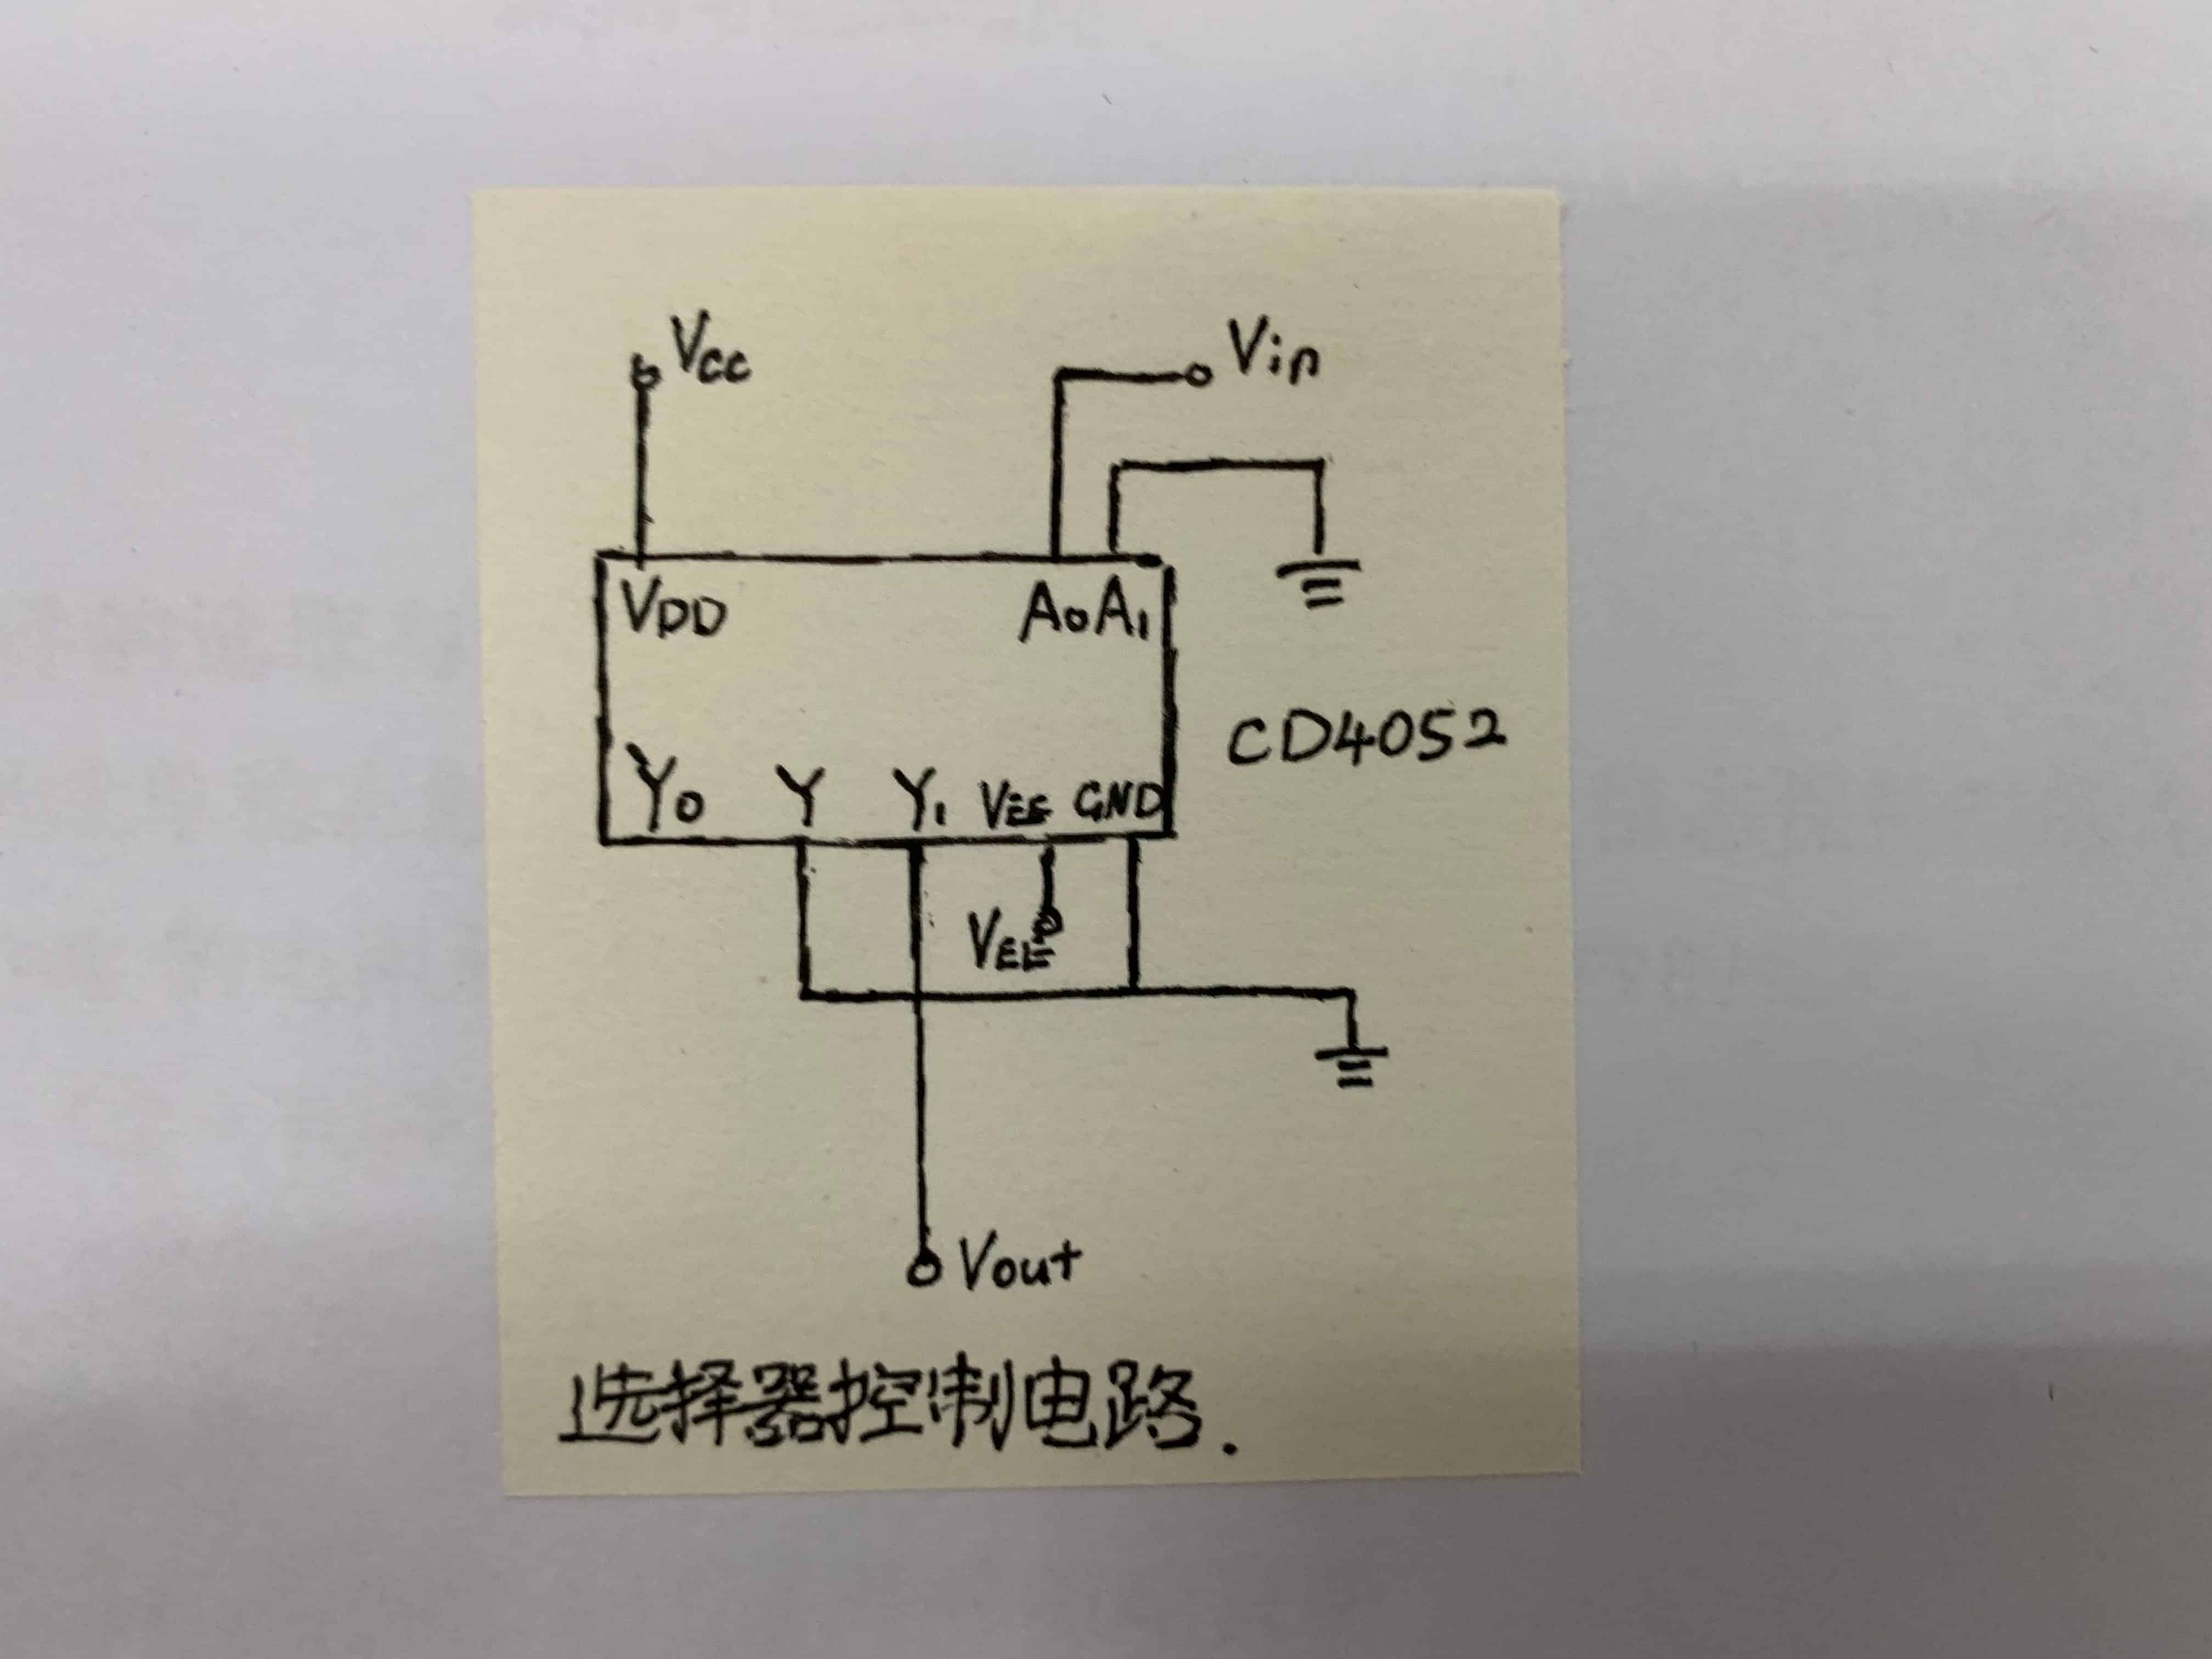 Vcc
Vin
VDD
A0 A1
CD4052
Y0 Y Y1 VEE GND
VEE
Vout
选择器控制电路.